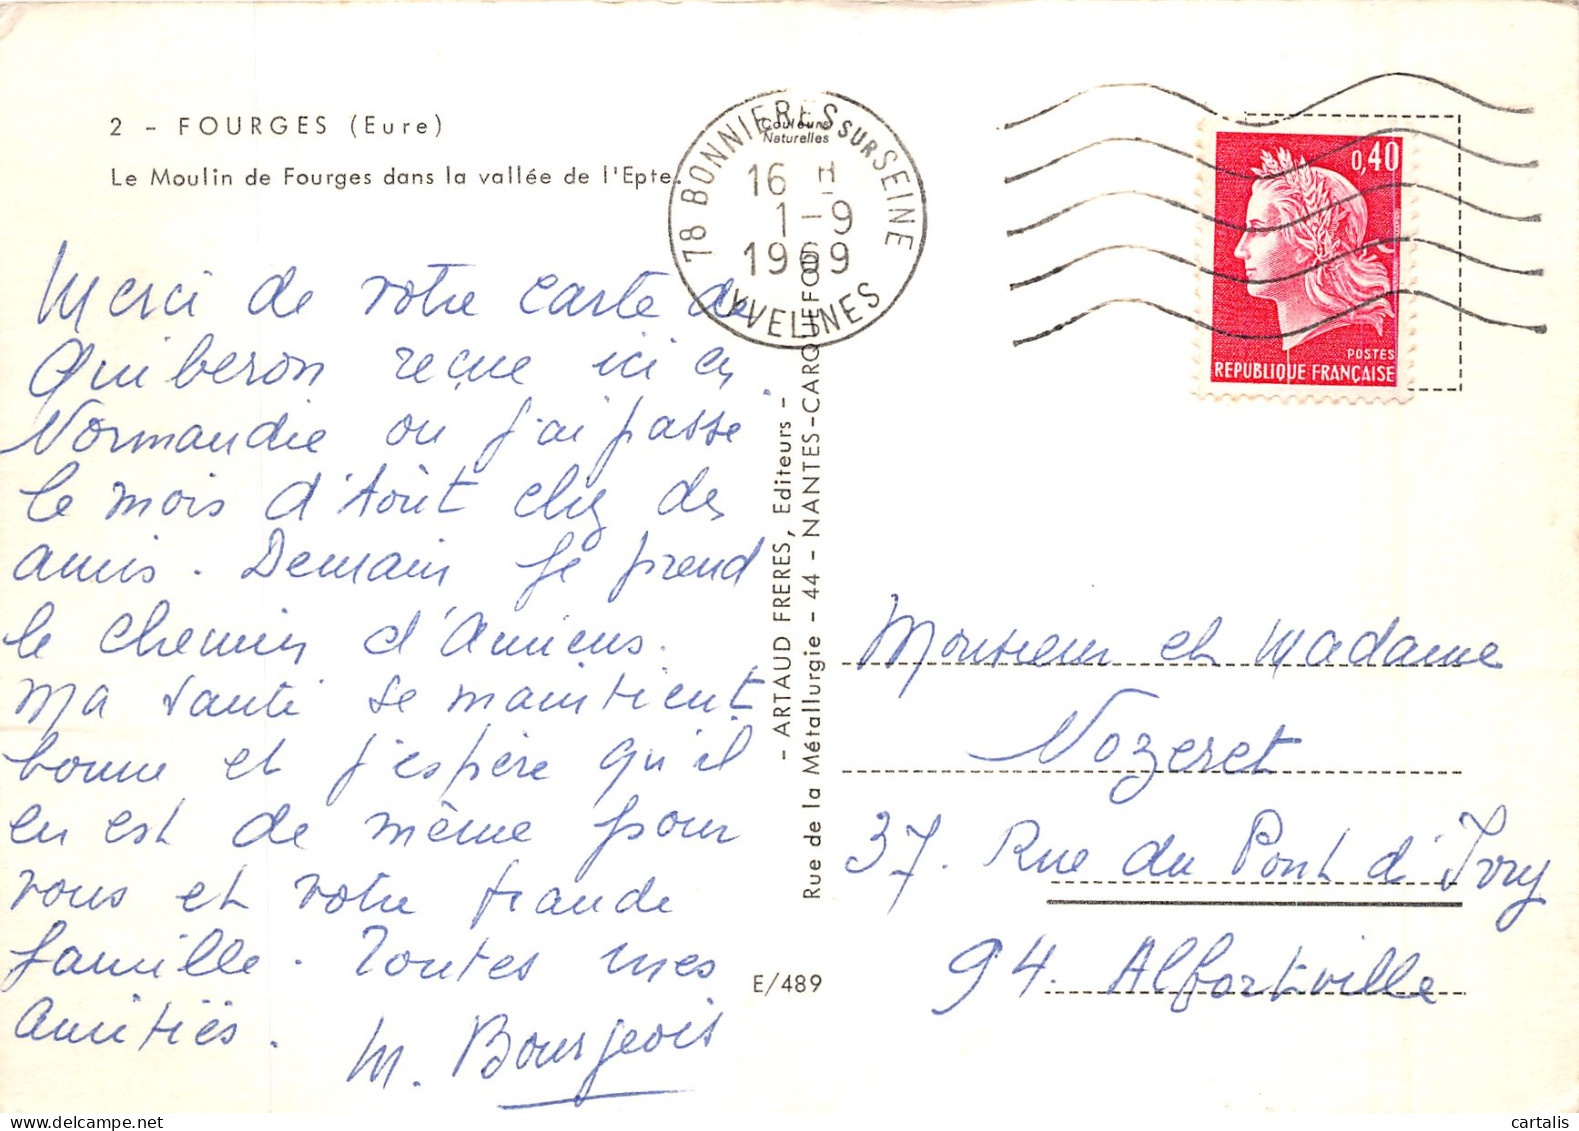 2 - FOURGES (Eure)
Le Moulin de Fourges dans la vallée de l'Epte
Couleurs
Naturelles
78 BONNIERES SUR SEINE
16 H
1-9
1969
YVELINES
0,40
POSTES
REPUBLIQUE FRANÇAISE
Merci de votre carte de
Quiberon reçue ici en
Normandie ou j'ai passé
le mois d'Août chez des
amis. Demain je prend
le chemin d'Amiens.
Ma santé se maintient
bonne et j'espère qu'il
en est de même pour
vous et votre grande
famille. Toutes mes
amitiés.
M. Bourgeois
- ARTAUD FRERES, Editeurs -
Rue de la Métallurgie - 44 - NANTES-CARQUEFOU
E/489
Monsieur et Madame
Nozeret
37. Rue du Pont d'Ivry
94. Alfortville
cartalis